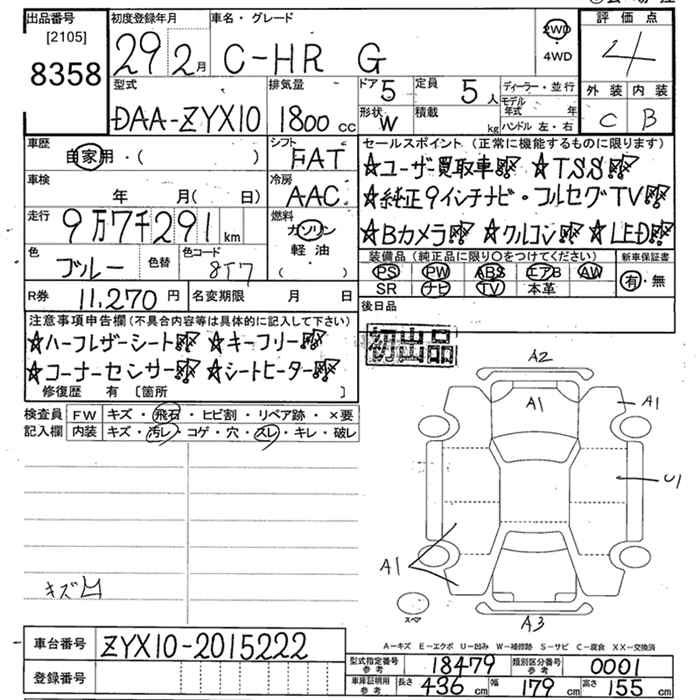 出品番号 初度登録年月 車名・グレード 2WD ・ 4WD 評価点
[2105]
8358 29 2月 C-HR G 4
型式 排気量 ドア 5 定員 5人 ディーラー・並行 外装 内装
DAA-ZYX10 1800cc 形状 W 積載 kg モデル年式 年 C B
ハンドル 左・右
車歴 自家用・( ) シフト FAT セールスポイント(正常に機能するものに限ります)
車検 年 月( 日) 冷房 AAC ☆ユーザー買取車!! ☆TSS!!
☆純正9インチナビ・フルセグTV!!
走行 9万7千291km 燃料 ガソリン 軽油 ( ) ☆Bカメラ!! ☆クルコン!! ☆LED!!
色 ブルー 色替 色コード 8T7 装備品(純正品に限り○をつけてください) 新車保証書
PS PW ABS エアB AW 有・無
R券 11,270円 名変期限 月 日 SR ナビ TV 本革
後日品
注意事項申告欄(不具合内容等は具体的に記入して下さい) 初出品
☆ハーフレザーシート!! ☆キーフリー!!
☆コーナーセンサー!! ☆シートヒーター!!
修復歴 有〔箇所 〕
検査員 FW キズ・飛石・ヒビ割・リペア跡・×要
記入欄 内装 キズ・汚レ・コゲ・穴・スレ・キレ・破レ
A2
A1 A1
U1
A1
キズ凹
スペア A3
A-キズ E-エクボ U-凹み W-補修跡 S-サビ C-腐食 XX-交換済
車台番号 ZYX10-2015222
型式指定番号 参考 18479 類別区分番号 参考 0001
登録番号
車庫証明用 参考 長さ 436cm 幅 179cm 高さ 155cm